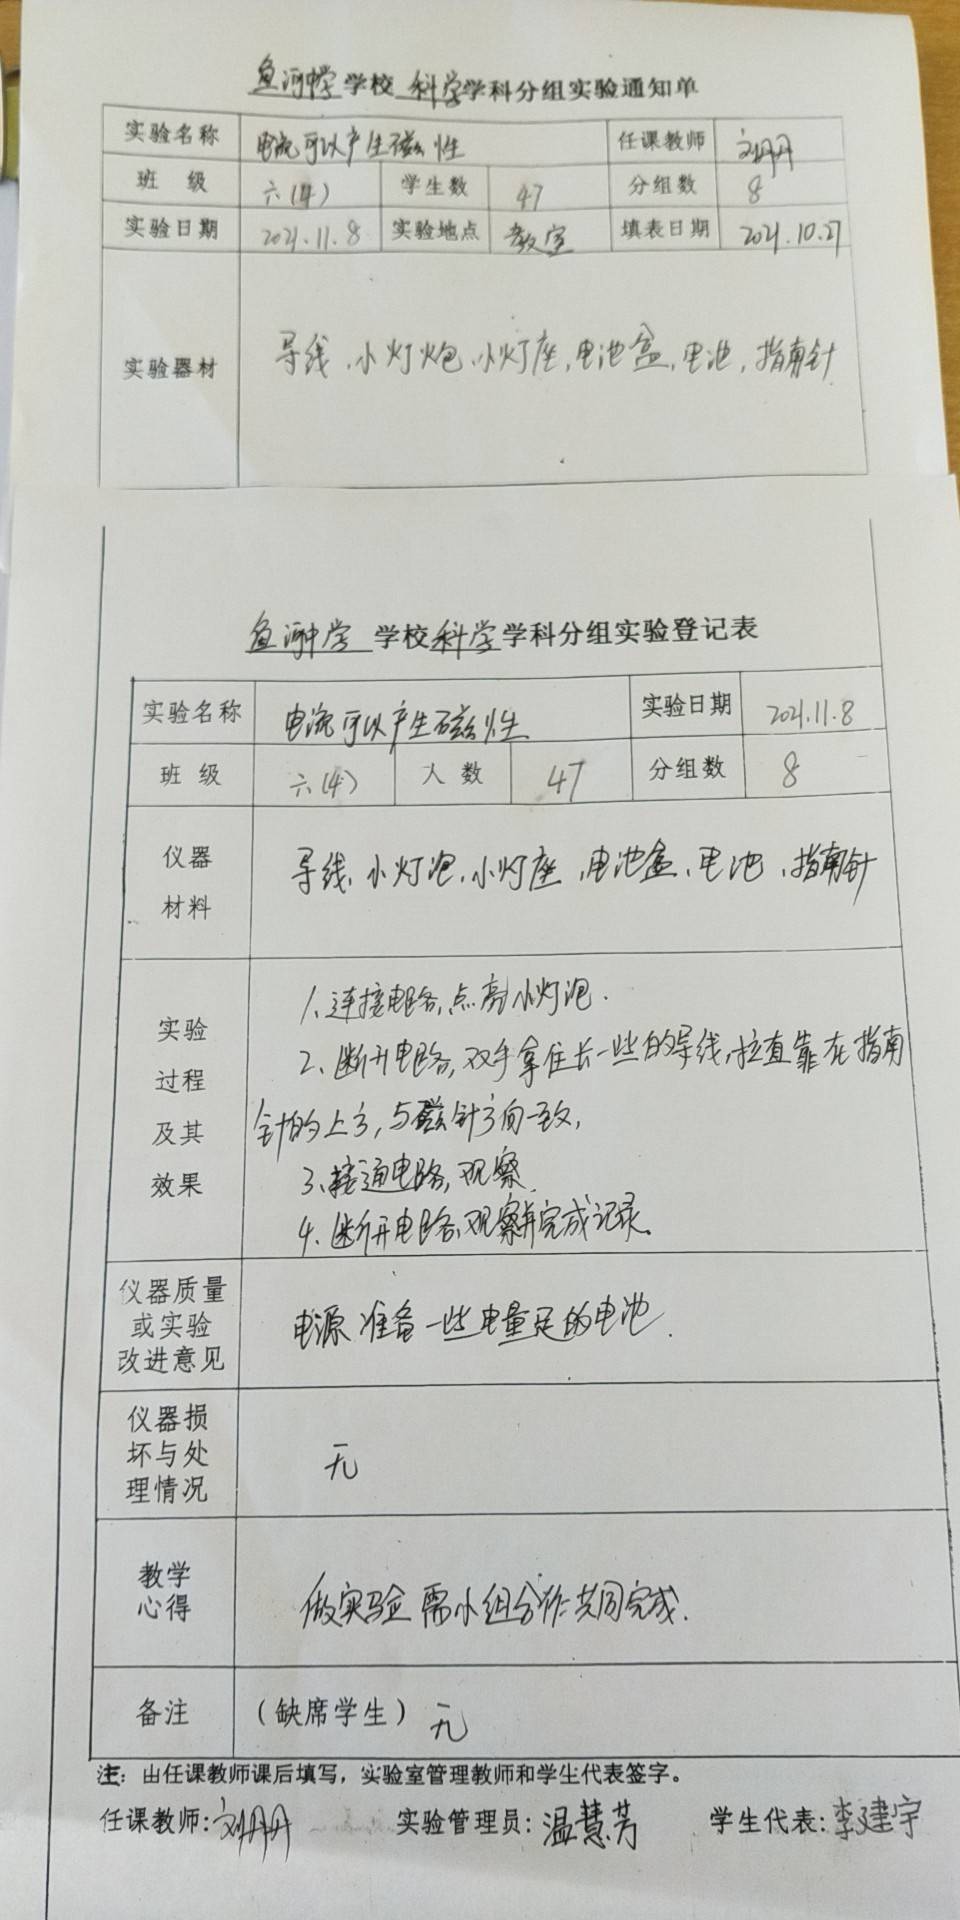 鱼河中学 学校 科学 学科分组实验通知单
实验名称 电流可以产生磁性 任课教师 刘丹丹
班 级 六(4) 学生数 47 分组数 8
实验日期 2021.11.8 实验地点 教室 填表日期 2021.10.27
实验器材 导线、小灯炮、小灯座、电池盒、电池、指南针
鱼河中学 学校 科学 学科分组实验登记表
实验名称 电流可以产生磁性 实验日期 2021.11.8
班 级 六(4) 人 数 47 分组数 8
仪器
材料
导线、小灯泡、小灯座、电池盒、电池、指南针
实验
过程
及其
效果
1、连接电路,点亮小灯泡.
2、断开电路,双手拿住长一些的导线,拉直靠在指南
针的上方,与磁针方向一致,
3、接通电路,观察.
4、断开电路,观察并完成记录。
仪器质量
或实验
改进意见
电源准备一些电量足的电池.
仪器损
坏与处
理情况
无
教学
心得
做实验需小组合作共同完成.
备注 (缺席学生) 无
注:由任课教师课后填写,实验室管理教师和学生代表签字。
任课教师:刘丹丹 实验管理员:温慧芳 学生代表:李建宇